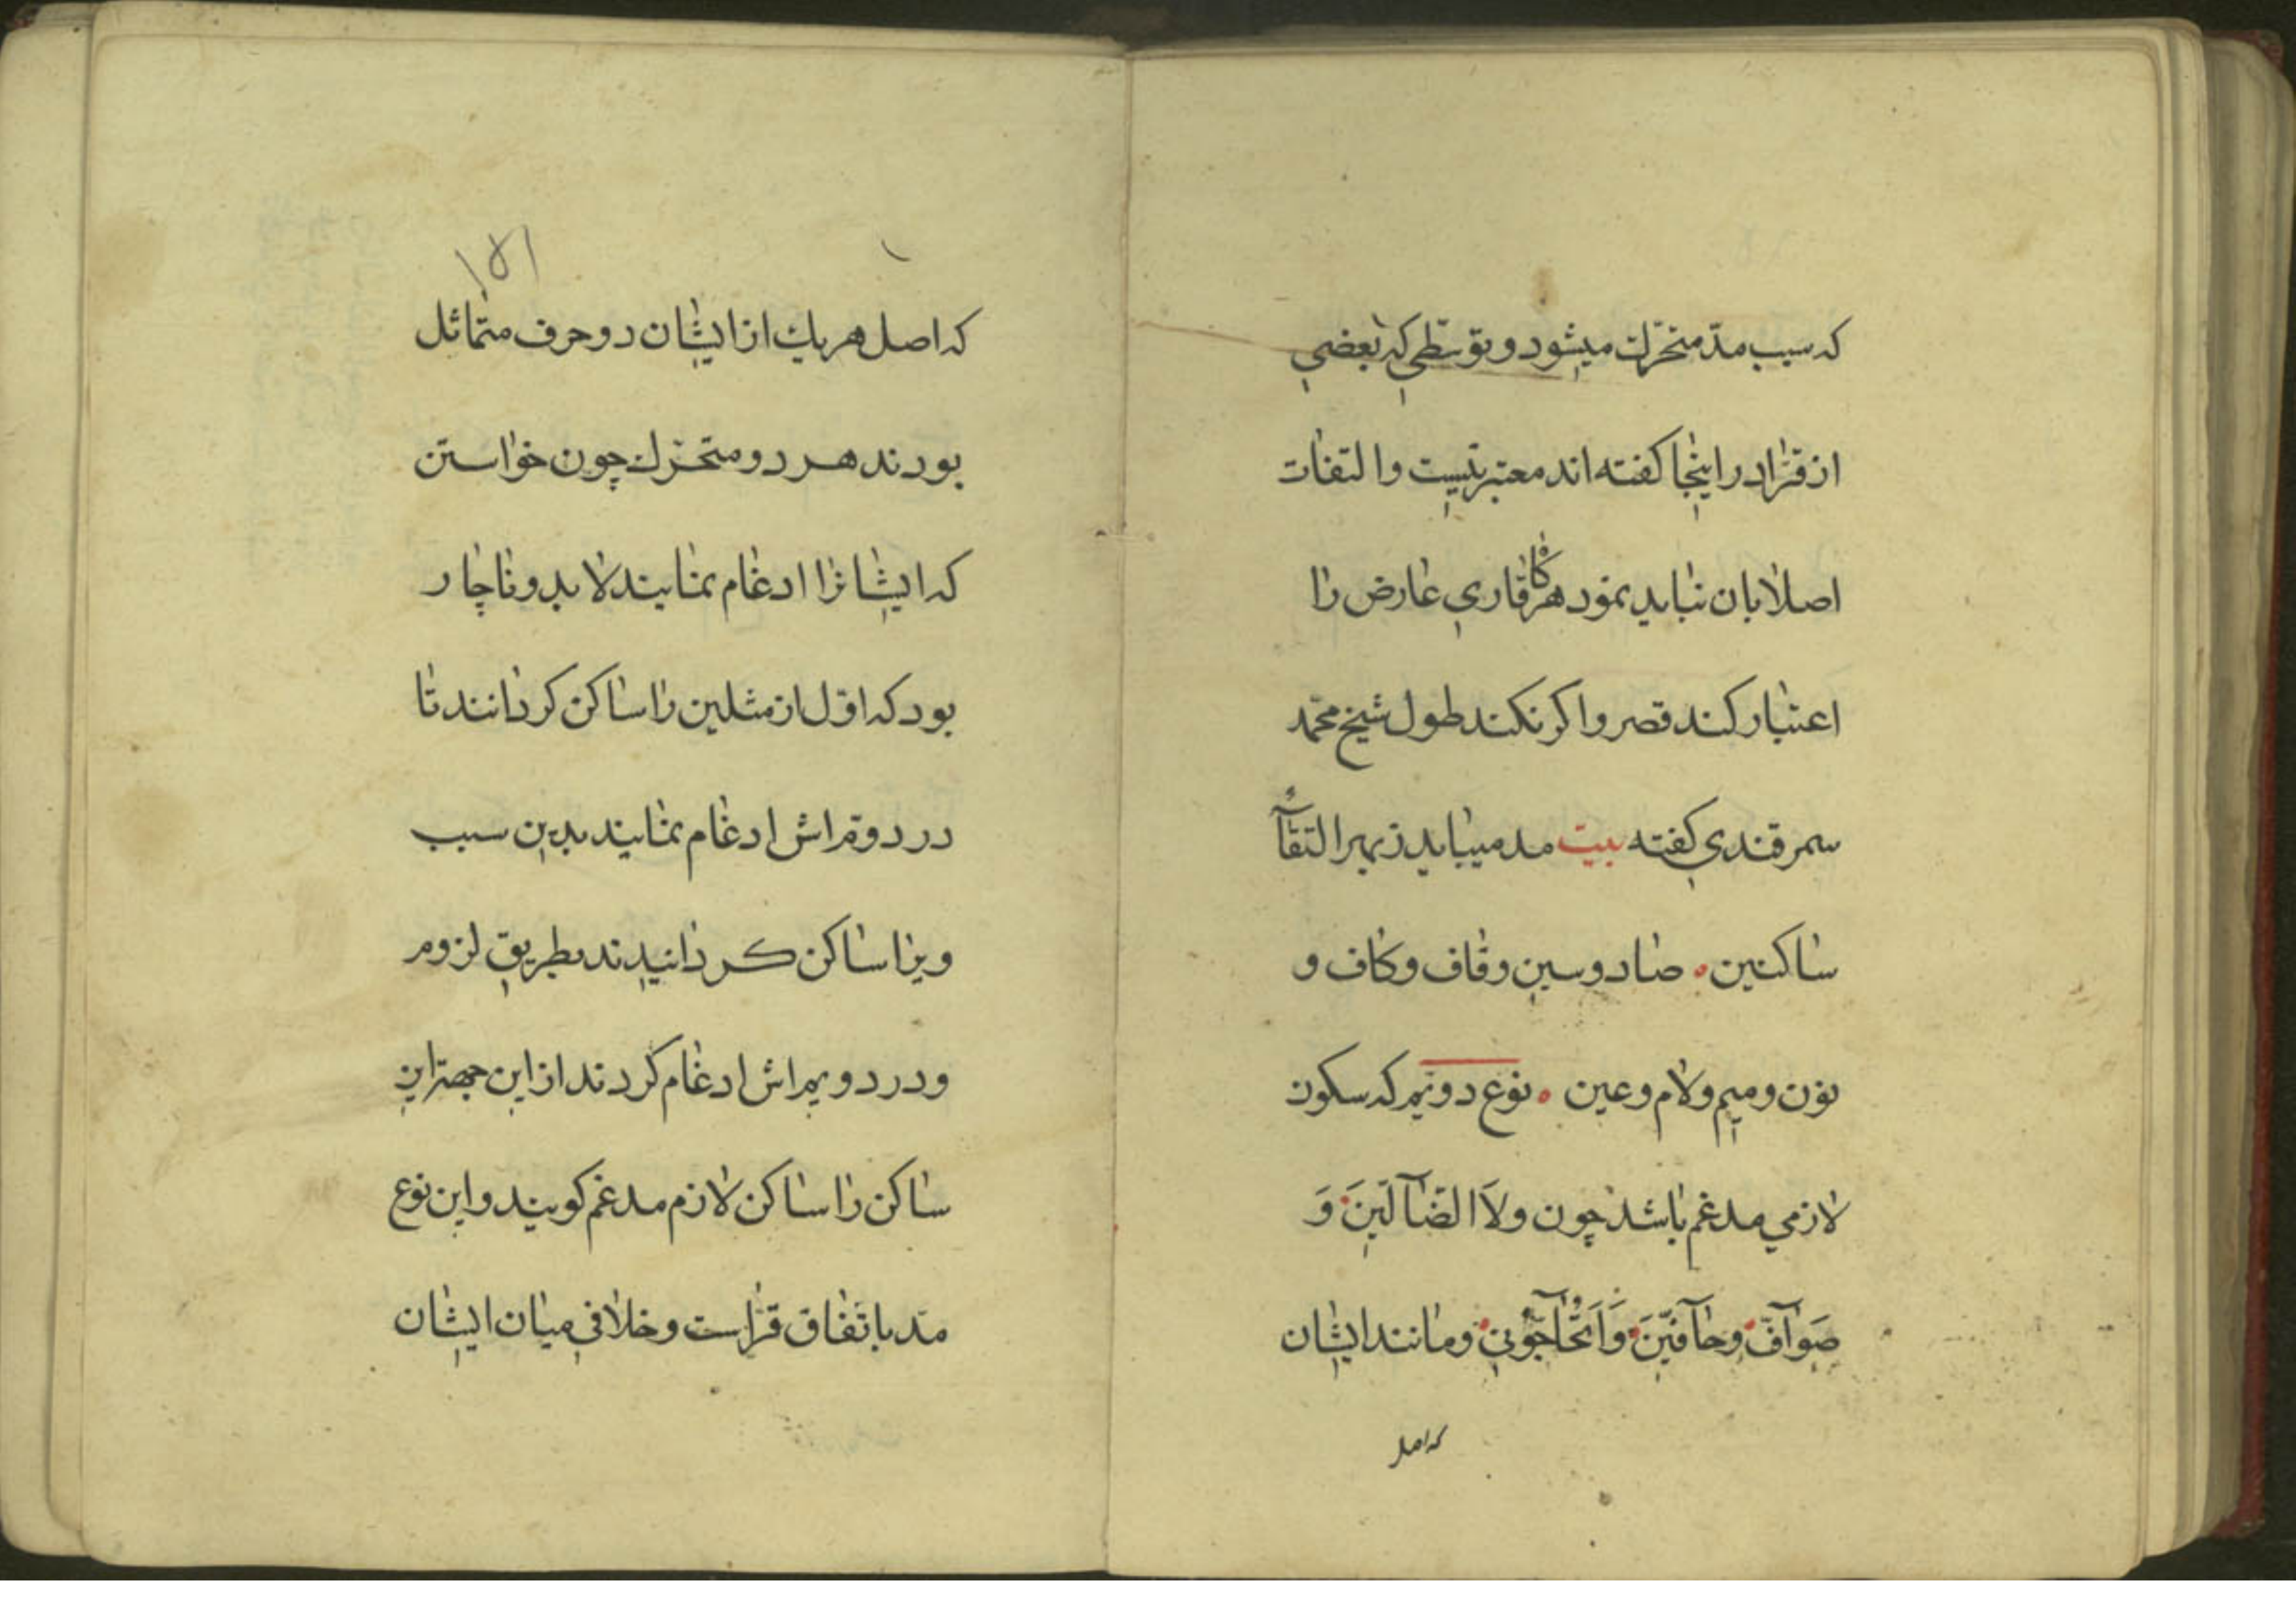 که سبب مدّ متحرّك میشود و توسّطی که بعضی
از قرّاء در اینجا کفته اند معتبر نیست و التفات
اصلا بان نباید نمود هرکاه قاری عارض را
اعتبار کند قصر و اکر نکند طول شیخ محمّد
سمرقندی کفته بیت مد میباید ز بهر التقآء
ساکنین ۰ صاد و سین و قاف و کاف و
نون و میم و لام و عین ۰ نوع دویم که سکون
لازمی مدغم باشد چون ولَا الضَّآلّینَ وَ
صَوَآفَّ وحَآفّینَ وَاَتُحَآجُّوٓنّی ومانند ایشان
که اصل
۱۵۱
که اصل هر یك از ایشان دو حرف متماثل
بودند هر دو متحرّك چون خواستن
که ایشانرا ادغام نمایند لابد و ناچار
بود که اوّل از مثلین را ساکن کردانند تا
در دوّم اش ادغام نمایند بدین سبب
ویرا ساکن کردانیدند بطریق لزوم
و در دویم اش ادغام کردند از این جهة این
ساکن را ساکن لازم مدغم کویند و این نوع
مدّ باتّفاق قرّاست و خلافی میان ایشان